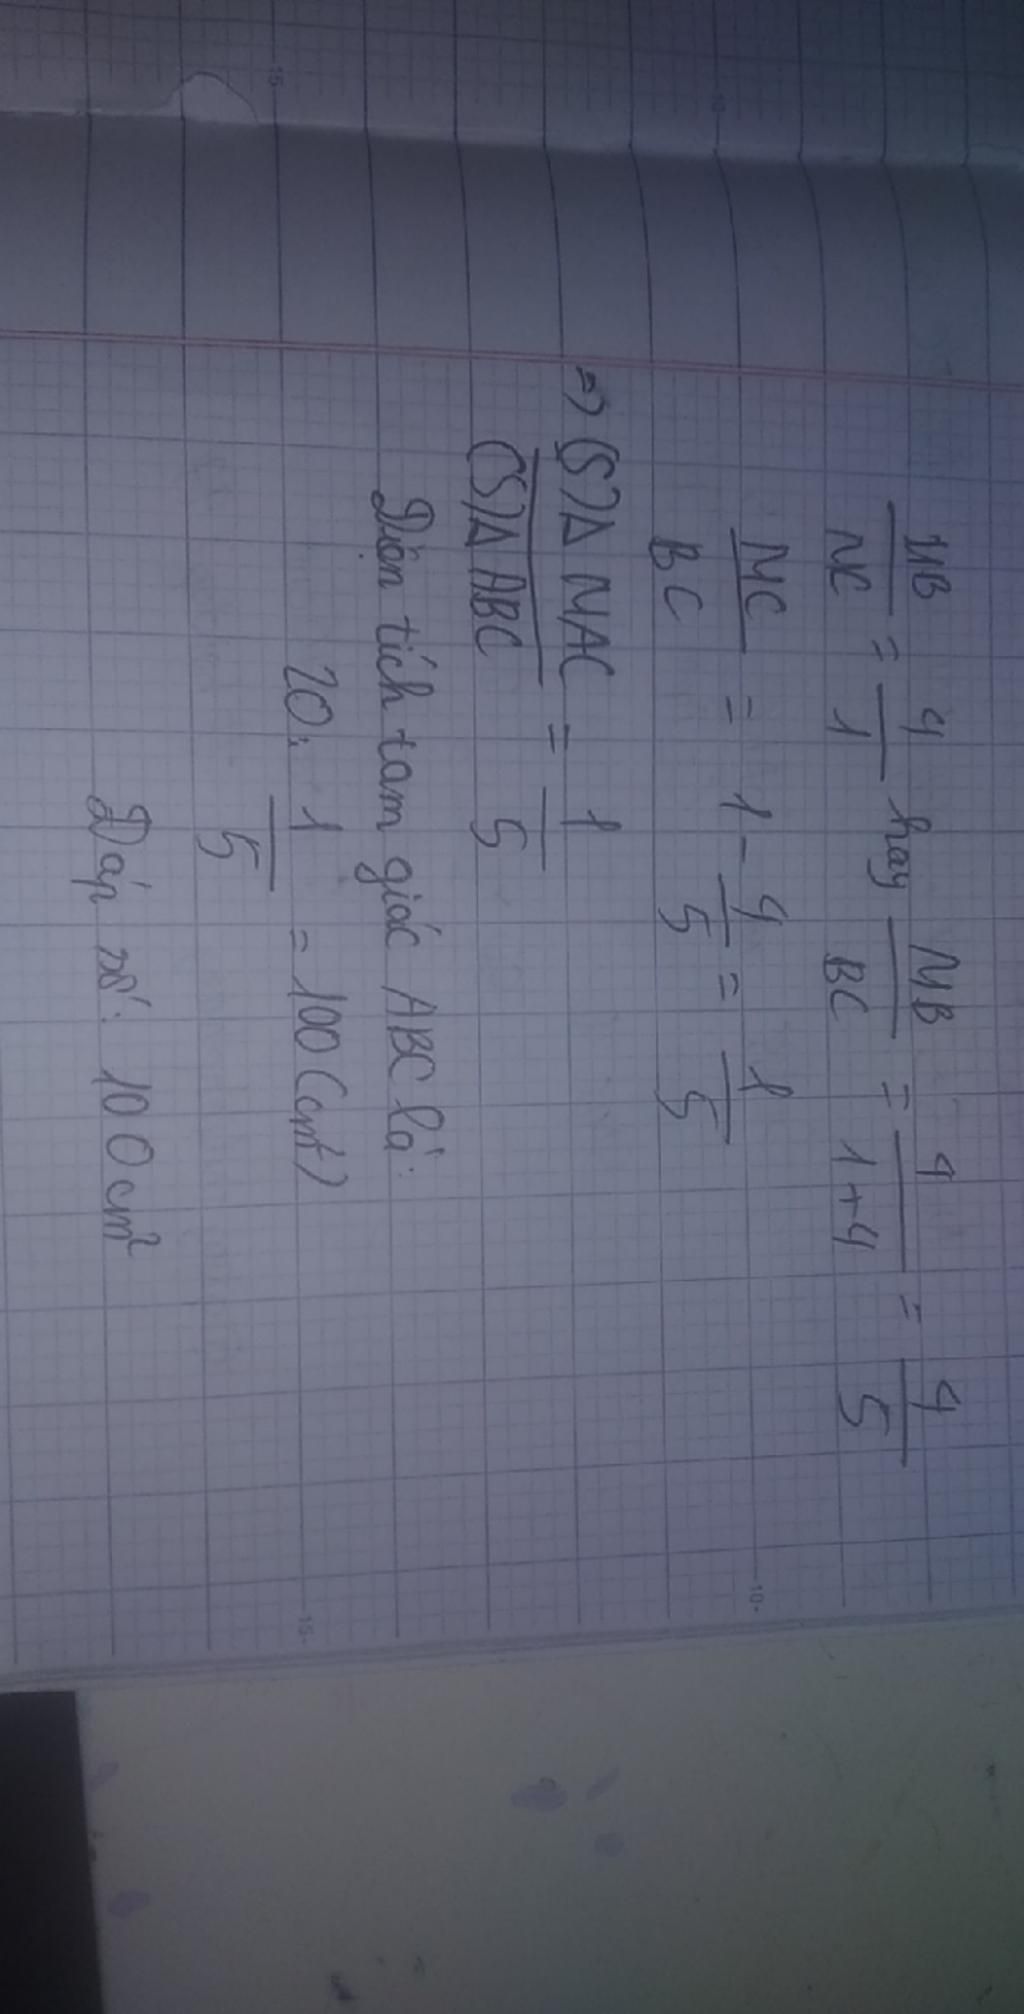 MB/MC = 4/1 hay MB/BC = 4/1+4 = 4/5
MC/BC = 1 - 4/5 = 1/5
=> (S)Δ MAC/(S)Δ ABC = 1/5
Diện tích tam giác ABC là:
20: 1/5 = 100 (cm²)
Đáp số: 100cm²